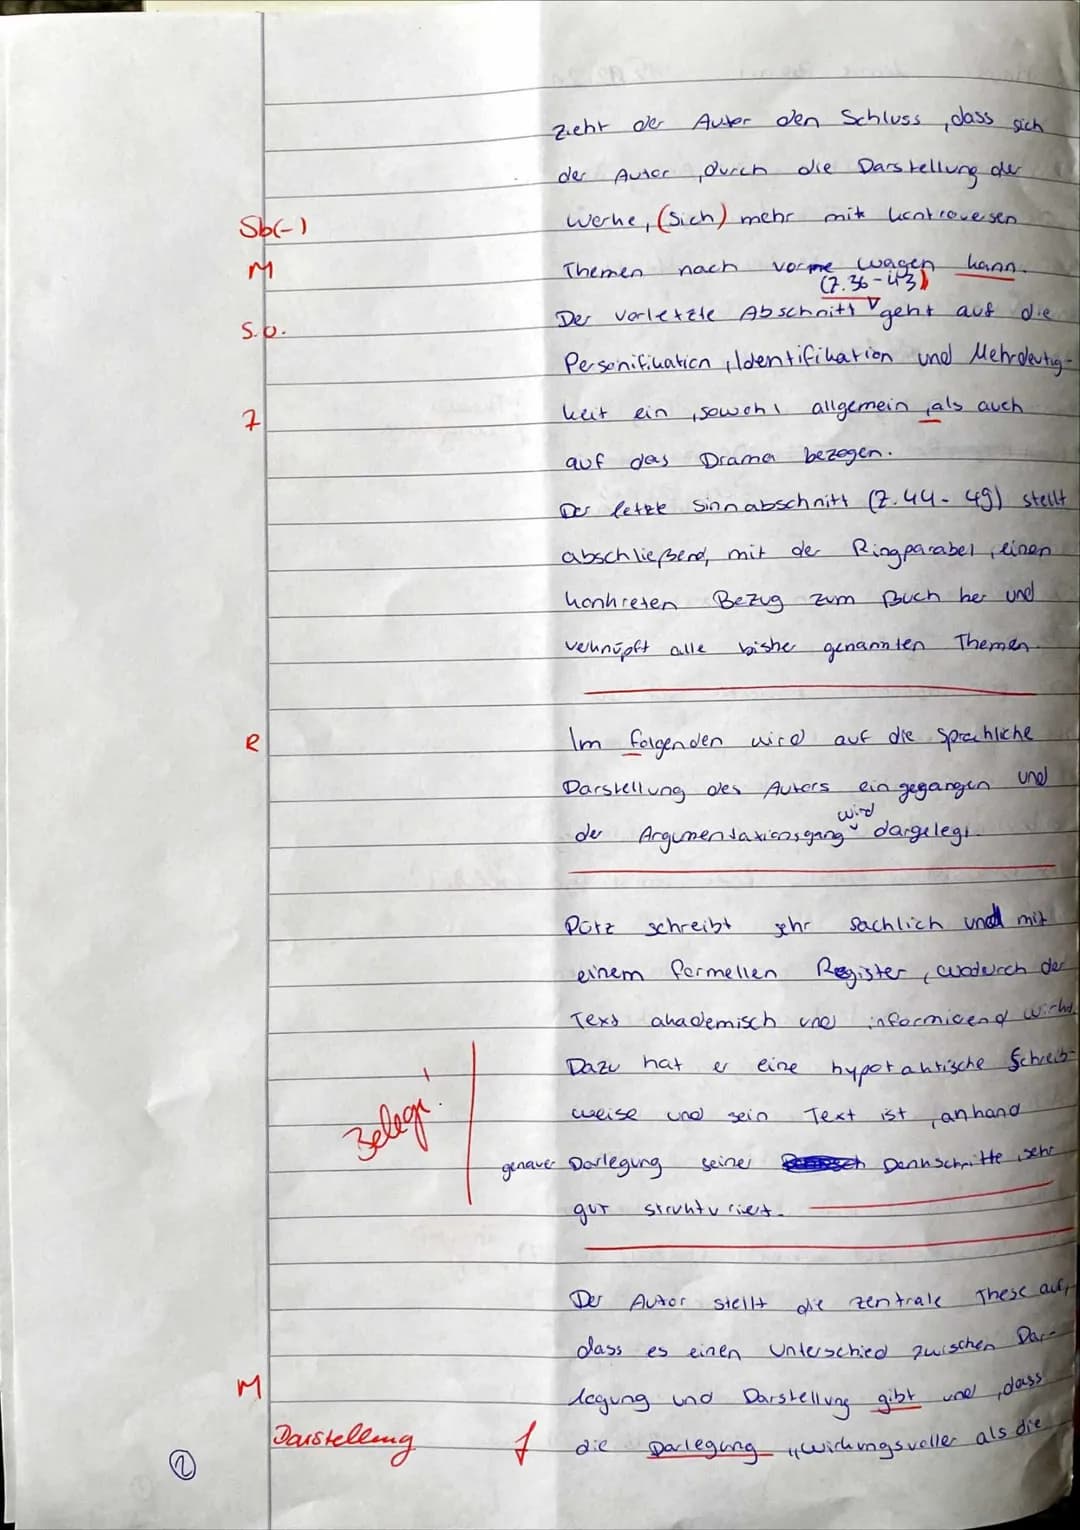 zieht der Autor den Schluss, dass sich
der Autor, durch die Darstellung der
Sb(-) Werke, (sich) mehr mit kontroversen
M Themen nach vorne wagen kann.
(Z. 36-43)
s.o. Der vorletzte Abschnitt geht auf die
Personifikation, Identifikation und Mehrdeutig-
7 keit ein, sowohl allgemein, als auch
auf das Drama bezogen.
Der letzte Sinnabschnitt (Z. 44-49) stellt
abschließend, mit der Ringparabel, einen
konkreten Bezug zum Buch her und
verknüpft alle bisher genannten Themen.
R Im folgenden wird auf die sprachliche
Darstellung des Autors eingegangen und
wird
der Argumentationsgang dargelegt.
Pütz schreibt sehr sachlich und mit
einem formellen Register, wodurch der
Text akademisch und informierend wirkt.
Dazu hat er eine hypotaktische Schreib-
Belege! weise und sein Text ist, anhand
genauer Darlegung seiner Denkschritte, sehr
gut strukturiert.
Der Autor stellt die zentrale These auf,
dass es einen Unterschied zwischen Dar-
M legung und Darstellung gibt und, dass
Darstellung f die Darlegung „wirkungsvoller als die
2